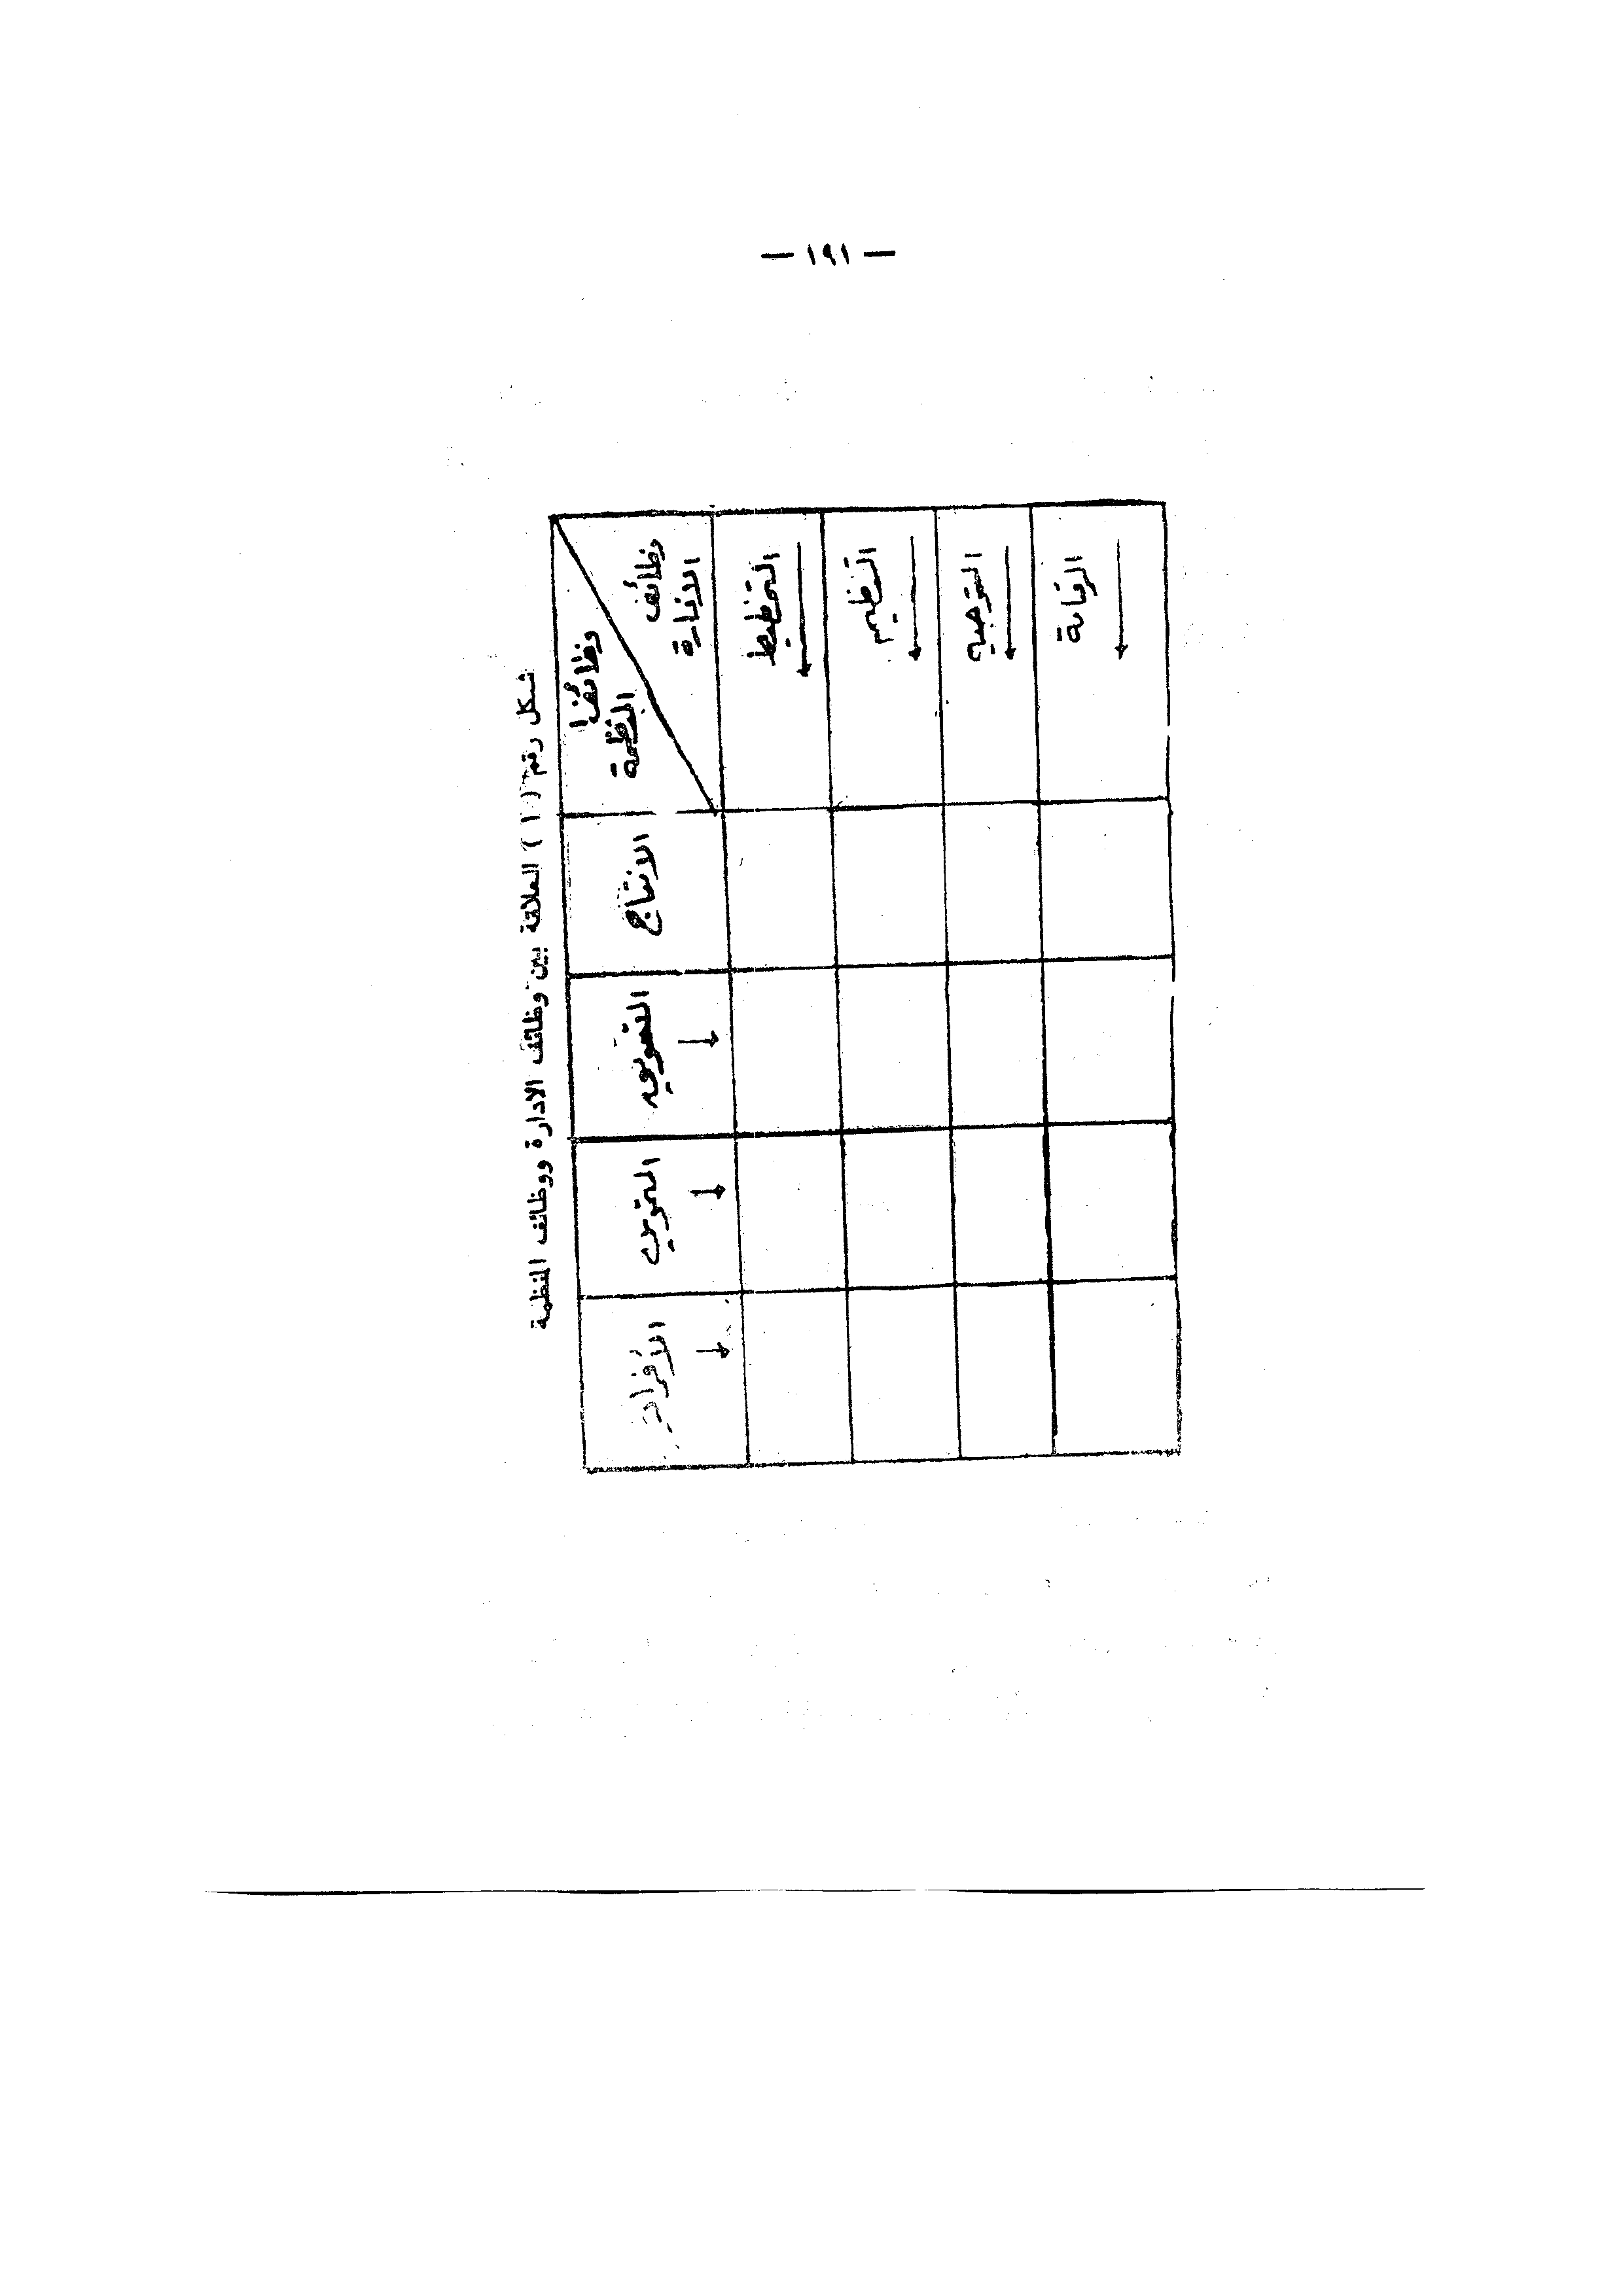 — ١٩١ —
شكل رقم (١) العلاقة بين وظائف الادارة ووظائف المنظمة
وظائف
المنظمة
وظائف
الادارة
الانتاج
التسويق
التمويل
الأفراد
التخطيط
التنظيم
التوجيه
الرقابة